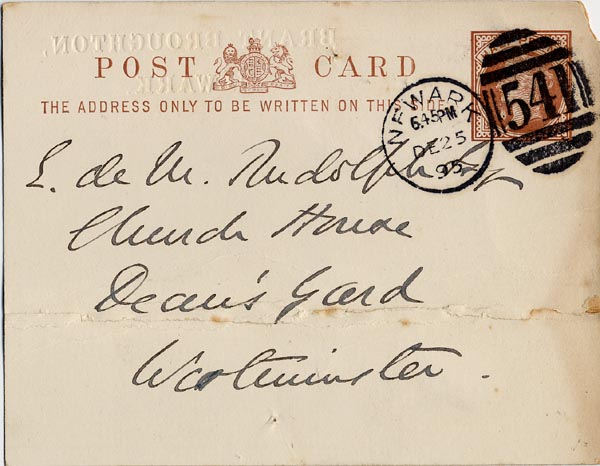 BRANT BROUGHTON,
NEWARK.
POST CARD
THE ADDRESS ONLY TO BE WRITTEN ON THIS SIDE
NEWARK
6.45PM
DE 25
95
541
E. de M. Rudolph Esq
Church House
Dean's Yard
Westminster.